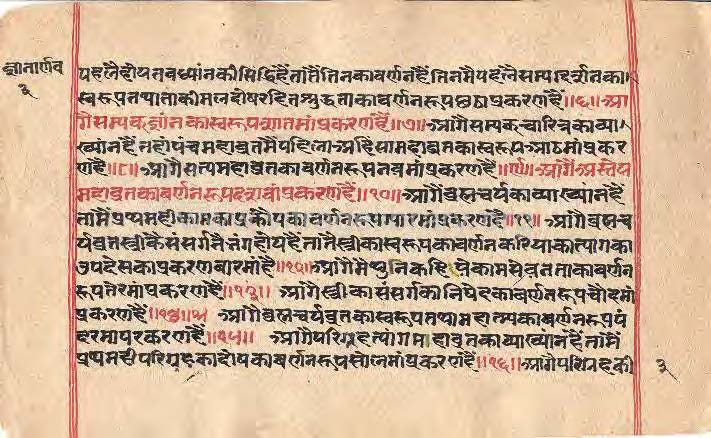 ज्ञानार्णव
३
पहलैहीयतबध्यांनकीसिद्धिहैतातैंतिनकावर्णनहैंतिनमैंपहलैसम्यग्दर्शनका
स्वरूपतथाताकीमलदोषरहितशुद्धताकावर्णनरूपछठाप्रकरणहैं॥६॥आ
गैसम्यकज्ञांनकास्वरूपसातमांप्रकरणहैं॥७॥आगैसम्यकचारित्रकाव्या
ख्यांनहैंतहांपंचमहाव्रतमैंपहिलाअहिंसामहाव्रतकास्वरूपआठमांप्रकर
णहैं॥८॥आगैसत्यमहाव्रतकावर्णनरूपनवमांप्रकरणहैं॥९॥आगैअस्तेय
महाव्रतकावर्णनरूपदशवांप्रकरणहैं॥१०॥आगैब्रह्मचर्यकाव्याख्यांनहैं
तामैंप्रथमहीकामकाप्रकोपकावर्णनरूपग्यारमांप्रकरणहैं॥११॥आगैब्रह्मच
र्यव्रतस्त्रीकैसंसर्गतैंहोयहैंतातैंस्त्रीकास्वरूपकावर्णनकरियाकात्यागका
उपदेसकाप्रकरणबारमांहैं॥१२॥आगैंमैथुनिकहियेकामसेवनताकावर्णन
रूपतेरमांप्रकरणहैं॥१३॥आगैस्त्रीकासंसर्गकीनिषेदकावर्णनरूपचौदमां
प्रकरणहैं॥१४॥आगैब्रह्मचर्यव्रतकास्वरूपतथामहात्म्यकावर्णनरूपपं
दरमांपरकरणहैं॥१५॥आगैपरिग्रहत्यागमहाव्रतकाव्याख्यांनहैंतामैं
प्रथमहीपरिग्रहकादोषकावर्णनरूपसोलमांप्रकरणहैं॥१६॥आगैपरिग्रहकी
३